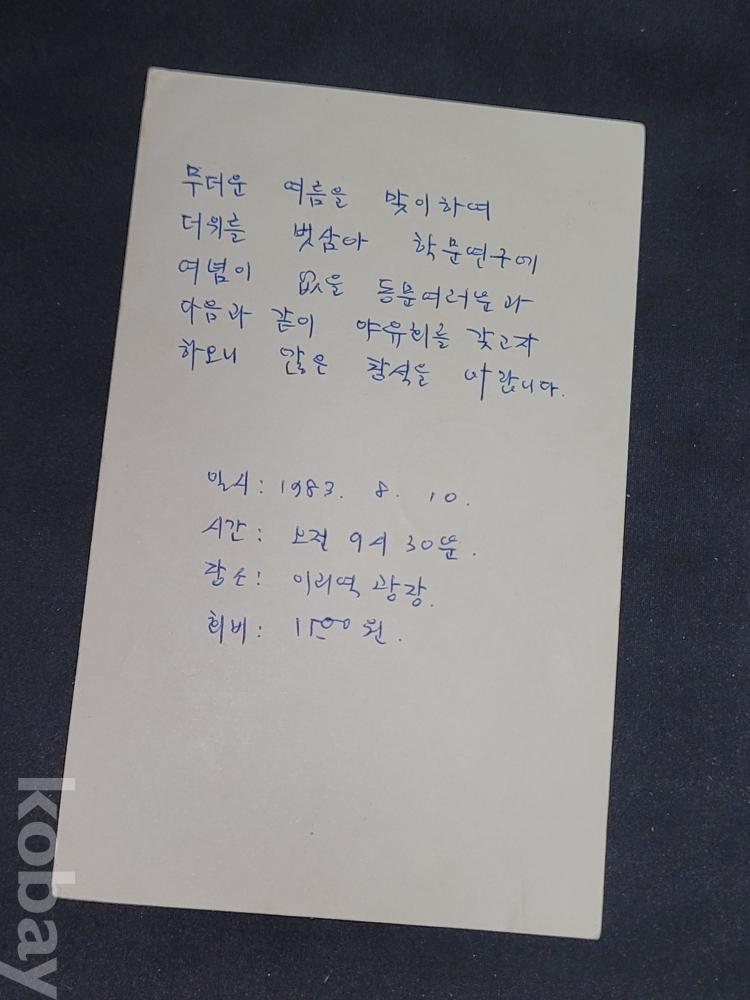 무더운 여름을 맞이하여
더위를 벗삼아 학문연구에
여념이 없을 동문여러분과
다음과 같이 야유회를 갖고자
하오니 많은 참석을 바랍니다.
일시: 1983. 8. 10.
시간: 오전 9시 30분.
장소: 이리역 광장.
회비: 1500원.
kobay